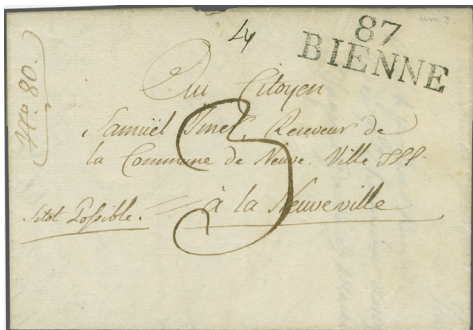 87
BIENNE
Nro. 80.
Au Citoyen
Samuël Imer, Receveur de
la Commune de Neuve. Ville
sitot Possible.
à la Neuveville
3